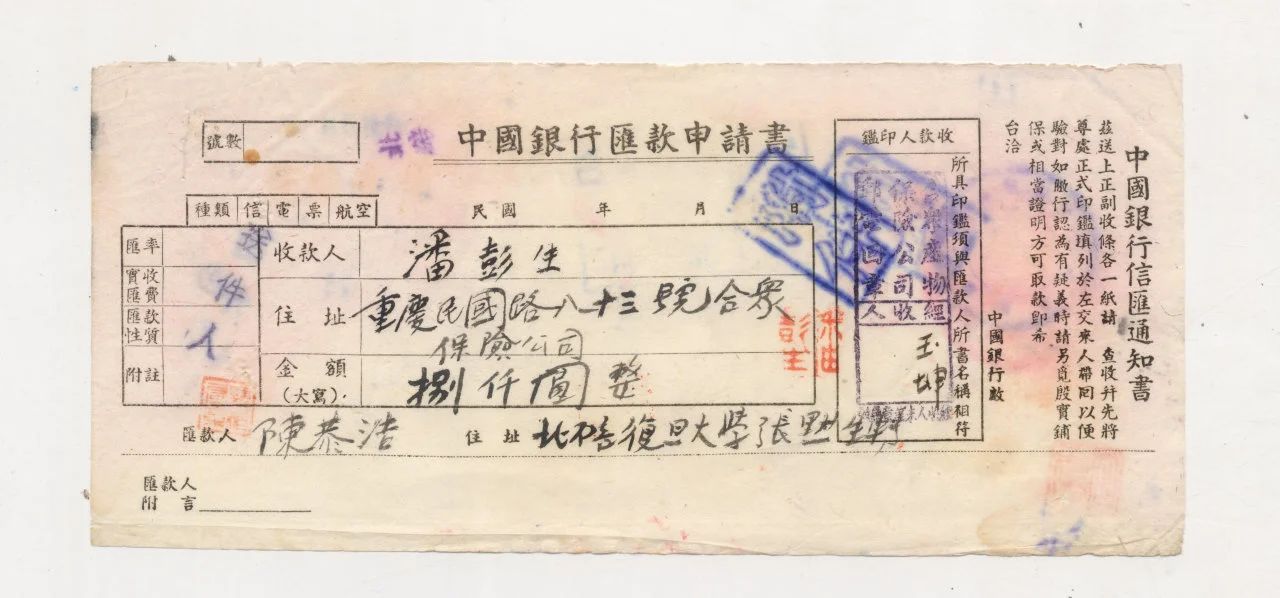 號數
中國銀行匯款申請書
種類 信 電 票 航空
民國 年 月 日
匯率
實收匯費
匯款性質
附註
收款人 潘彭生
住址 重慶民國路八十三號合眾
保險公司
金額(大寫) 捌仟圓整
匯款人 陳恭浩 住址 北碚復旦大學張
匯款人
附言
收款人印鑑
所具印鑑須與匯款人所書名稱相符
產物
保險公司
經收人
中國銀行信匯通知書
茲送上正副收條各一紙請 查收幷先將
尊處正式印鑑填列於左交來人帶回以便
驗對如敝行認為有疑義時請另覓殷實鋪
保或相當證明方可取款卽希
台洽
中國銀行啟